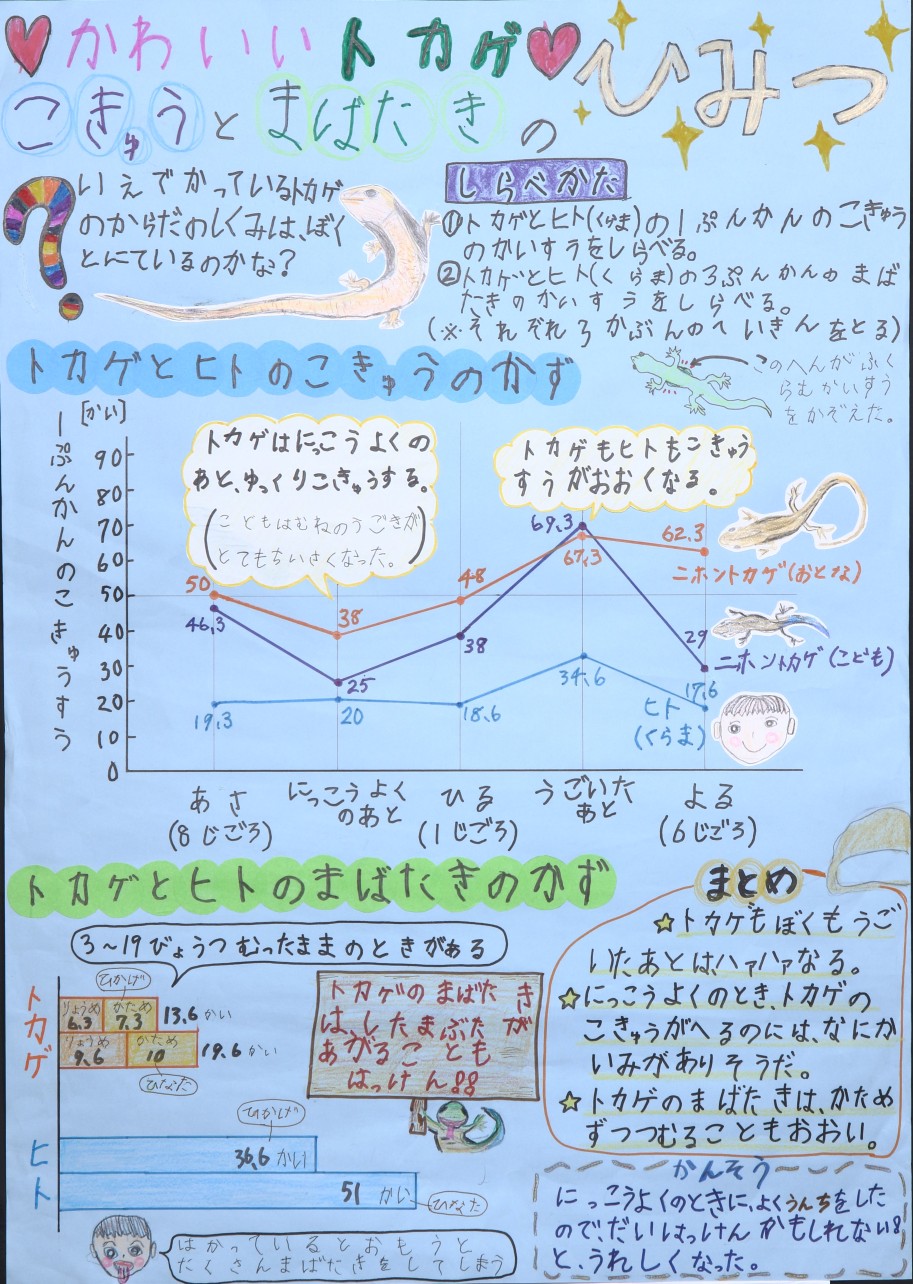 かわいいトカゲ
ひみつ
こきゅうとまばたきの
?
いえでかっているトカゲ
のからだのしくみは、ぼく
とにているのかな?
しらべかた
①トカゲとヒト(くらま)の1ぷんかんのこきゅう
のかいすうをしらべる。
②トカゲとヒト(くらま)の3ぷんかんのまば
たきのかいすうをしらべる。
(※それぞれ3かぶんのへいきんをとる)
トカゲとヒトのこきゅうのかず
このへんがふく
らむかいすう
をかぞえた。
[かい]
1ぷんかんのこきゅうすう
90
80
70
60
50
40
30
20
10
0
トカゲはにっこうよくの
あと、ゆっくりこきゅうする。
(こどもはむねのうごきが
とてもちいさくなった。)
トカゲもヒトもこきゅう
すうがおおくなる。
50
38
48
67.3
62.3
ニホントカゲ(おとな)
46.3
25
38
69.3
29
ニホントカゲ(こども)
19.3
20
18.6
34.6
17.6
ヒト
(くらま)
あさ
(8じごろ)
にっこうよく
のあと
ひる
(1じごろ)
うごいた
あと
よる
(6じごろ)
トカゲとヒトのまばたきのかず
3~19びょうつむったままのときがある
トカゲ
ひかげ
りょうめ
6.3
かため
7.3
13.6かい
りょうめ
9.6
かため
10
19.6かい
ひなた
ヒト
ひかげ
36.6かい
51かい
ひなた
はかっているとおもうと
たくさんまばたきをしてしまう
トカゲのまばたき
は、したまぶたが
あがることも
はっけん!!
まとめ
☆トカゲもぼくもうご
いたあとは、ハァハァなる。
☆にっこうよくのとき、トカゲの
こきゅうがへるのには、なにか
いみがありそうだ。
☆トカゲのまばたきは、かため
ずつつむることもおおい。
かんそう
にっこうよくのときに、よくうんちをした
ので、だいはっけんかもしれない!!
と、うれしくなった。